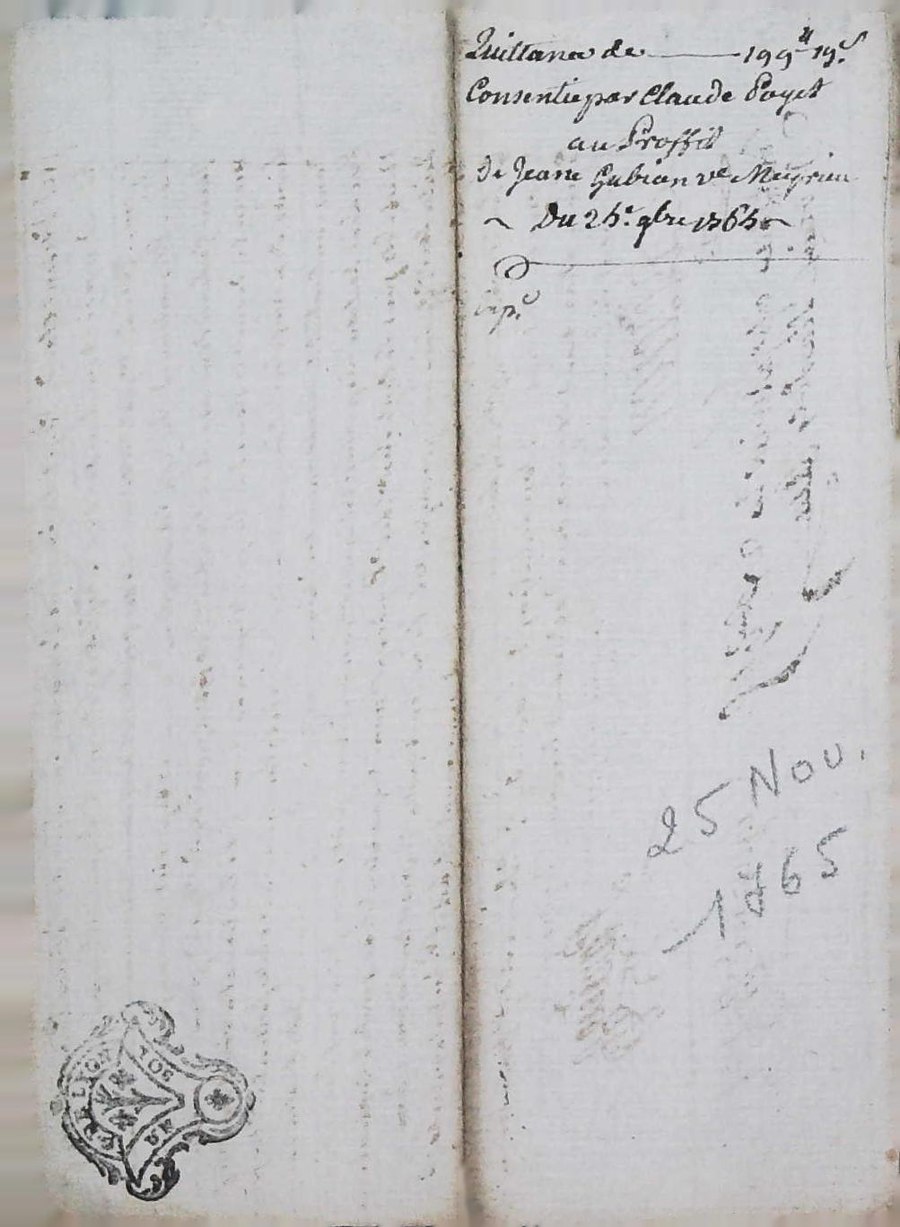 Quittance de 199# 19s.
Consentie par Claude Poyet
au Proffit
de Jeane Gubian ve Meyrieu
Du 25e. 9bre 1765
exp.e
25 Nov.
1765
LYON
DE